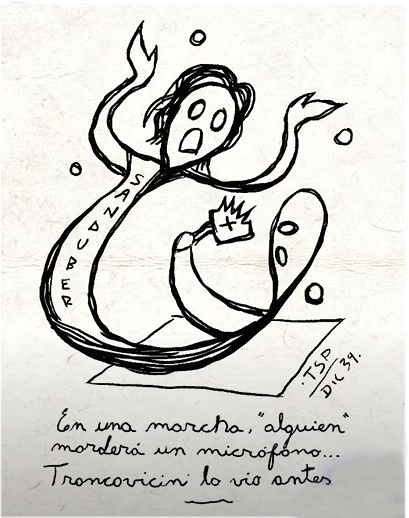 SANDUBER
.TSP
DIC 39.
En una marcha, "alguien"
morderá un micrófono...
Troncovicin lo vio antes